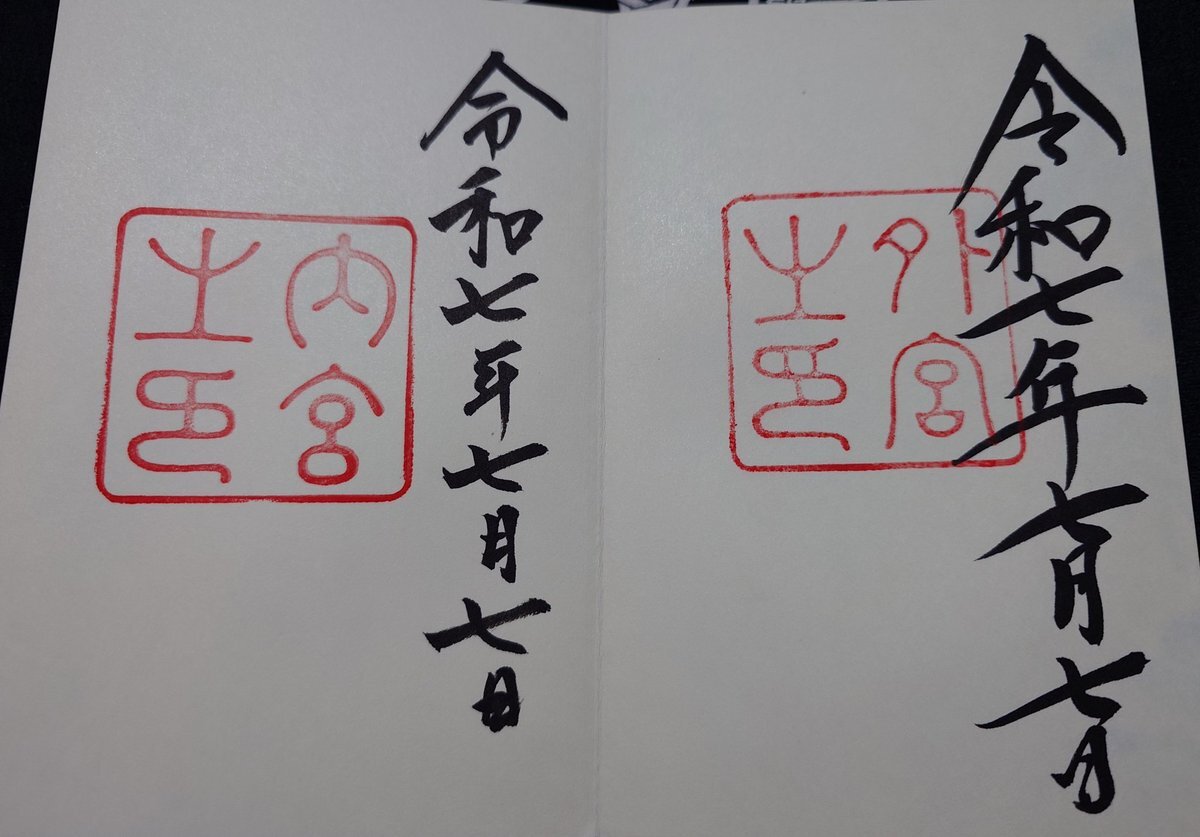 令和七年七月七日
外宮之印
令和七年七月七日
内宮之印